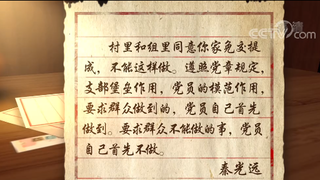 CCTV
村里和组里同意你家免交提
成，不能这样做。遵照党章规定，
支部堡垒作用，党员的模范作用，
要求群众做到的，党员自己首先
做到。要求群众不能做的事，党员
自己首先不做。
秦光远